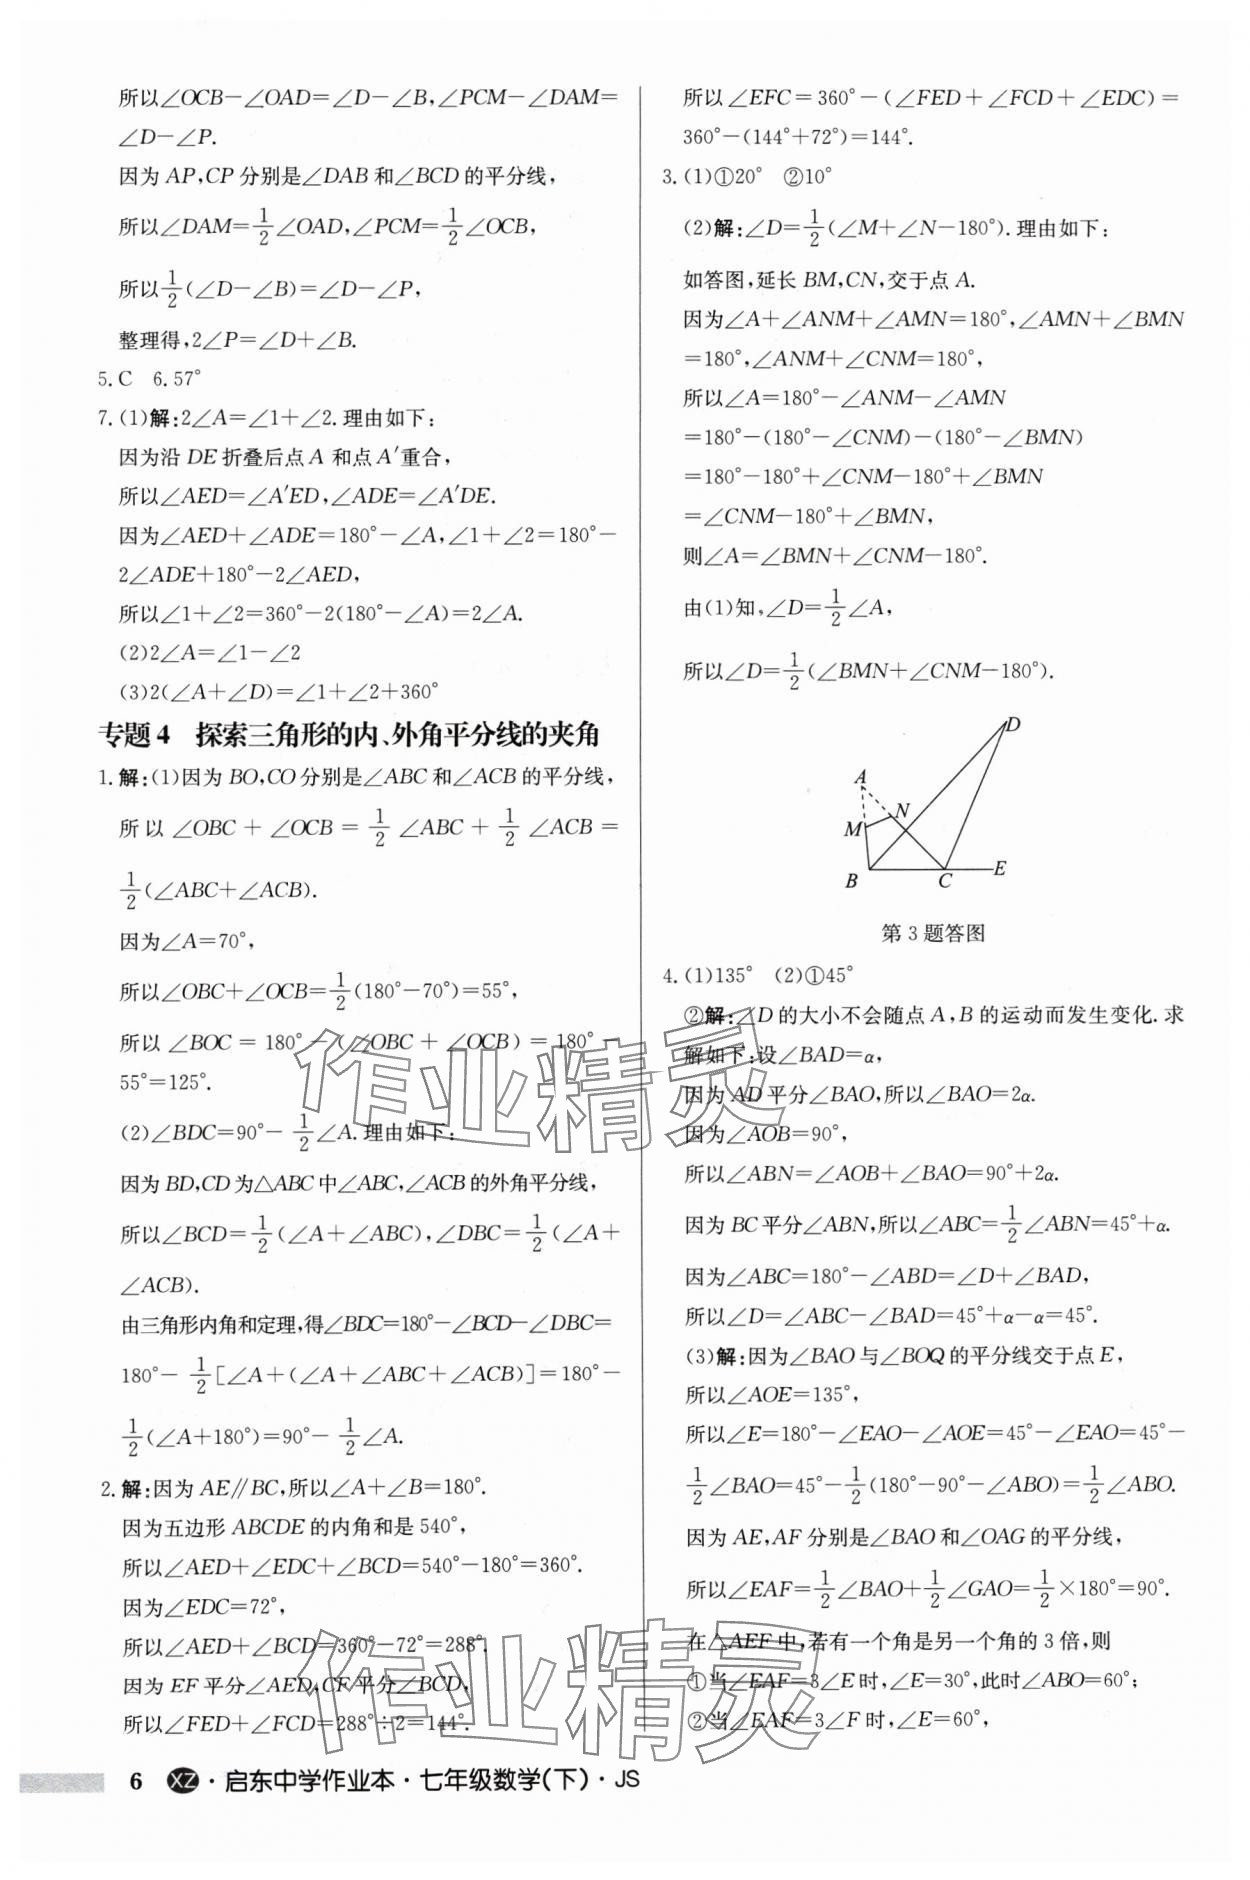 所以∠OCB−∠OAD=∠D−∠B,∠PCM−∠DAM=
∠D−∠P.
因为 AP,CP 分别是∠DAB 和∠BCD 的平分线,
所以∠DAM=1/2∠OAD,∠PCM=1/2∠OCB,
所以1/2(∠D−∠B)=∠D−∠P,
整理得,2∠P=∠D+∠B.
5.C 6.57°
7.(1)解:2∠A=∠1+∠2.理由如下:
因为沿 DE 折叠后点 A 和点 A′重合,
所以∠AED=∠A′ED,∠ADE=∠A′DE.
因为∠AED+∠ADE=180°−∠A,∠1+∠2=180°−
2∠ADE+180°−2∠AED,
所以∠1+∠2=360°−2(180°−∠A)=2∠A.
(2)2∠A=∠1−∠2
(3)2(∠A+∠D)=∠1+∠2+360°
专题 4 探索三角形的内、外角平分线的夹角
1.解:(1)因为 BO,CO 分别是∠ABC 和∠ACB 的平分线,
所以 ∠OBC + ∠OCB = 1/2 ∠ABC + 1/2 ∠ACB =
1/2(∠ABC+∠ACB).
因为∠A=70°,
所以∠OBC+∠OCB=1/2(180°−70°)=55°,
所以 ∠BOC = 180° − (∠OBC + ∠OCB) = 180° −
55°=125°.
(2)∠BDC=90°− 1/2∠A.理由如下:
因为 BD,CD 为△ABC 中∠ABC,∠ACB 的外角平分线,
所以∠BCD=1/2(∠A+∠ABC),∠DBC=1/2(∠A+
∠ACB).
由三角形内角和定理,得∠BDC=180°−∠BCD−∠DBC=
180°− 1/2[∠A+(∠A+∠ABC+∠ACB)]=180°−
1/2(∠A+180°)=90°− 1/2∠A.
2.解:因为 AE∥BC,所以∠A+∠B=180°.
因为五边形 ABCDE 的内角和是 540°,
所以∠AED+∠EDC+∠BCD=540°−180°=360°.
因为∠EDC=72°,
所以∠AED+∠BCD=360°−72°=288°.
因为 EF 平分∠AED,CF 平分∠BCD,
所以∠FED+∠FCD=288°÷2=144°.
所以∠EFC=360°−(∠FED+∠FCD+∠EDC)=
360°−(144°+72°)=144°.
3.(1)①20° ②10°
(2)解:∠D=1/2(∠M+∠N−180°).理由如下:
如答图,延长 BM,CN,交于点 A.
因为∠A+∠ANM+∠AMN=180°,∠AMN+∠BMN
=180°,∠ANM+∠CNM=180°,
所以∠A=180°−∠ANM−∠AMN
=180°−(180°−∠CNM)−(180°−∠BMN)
=180°−180°+∠CNM−180°+∠BMN
=∠CNM−180°+∠BMN,
则∠A=∠BMN+∠CNM−180°.
由(1)知,∠D=1/2∠A,
所以∠D=1/2(∠BMN+∠CNM−180°).
D
A
N
M
B
C
E
第 3 题答图
4.(1)135° (2)①45°
②解:∠D 的大小不会随点 A,B 的运动而发生变化.求
解如下:设∠BAD=α,
因为 AD 平分∠BAO,所以∠BAO=2α.
因为∠AOB=90°,
所以∠ABN=∠AOB+∠BAO=90°+2α.
因为 BC 平分∠ABN,所以∠ABC=1/2∠ABN=45°+α.
因为∠ABC=180°−∠ABD=∠D+∠BAD,
所以∠D=∠ABC−∠BAD=45°+α−α=45°.
(3)解:因为∠BAO 与∠BOQ 的平分线交于点 E,
所以∠AOE=135°,
所以∠E=180°−∠EAO−∠AOE=45°−∠EAO=45°−
1/2∠BAO=45°−1/2(180°−90°−∠ABO)=1/2∠ABO.
因为 AE,AF 分别是∠BAO 和∠OAG 的平分线,
所以∠EAF=1/2∠BAO+1/2∠GAO=1/2×180°=90°.
在△AEF 中,若有一个角是另一个角的 3 倍,则
①当∠EAF=3∠E 时,∠E=30°,此时∠ABO=60°;
②当∠EAF=3∠F 时,∠E=60°,
作业精灵
作业精灵
6 XZ·启东中学作业本·七年级数学(下)·JS